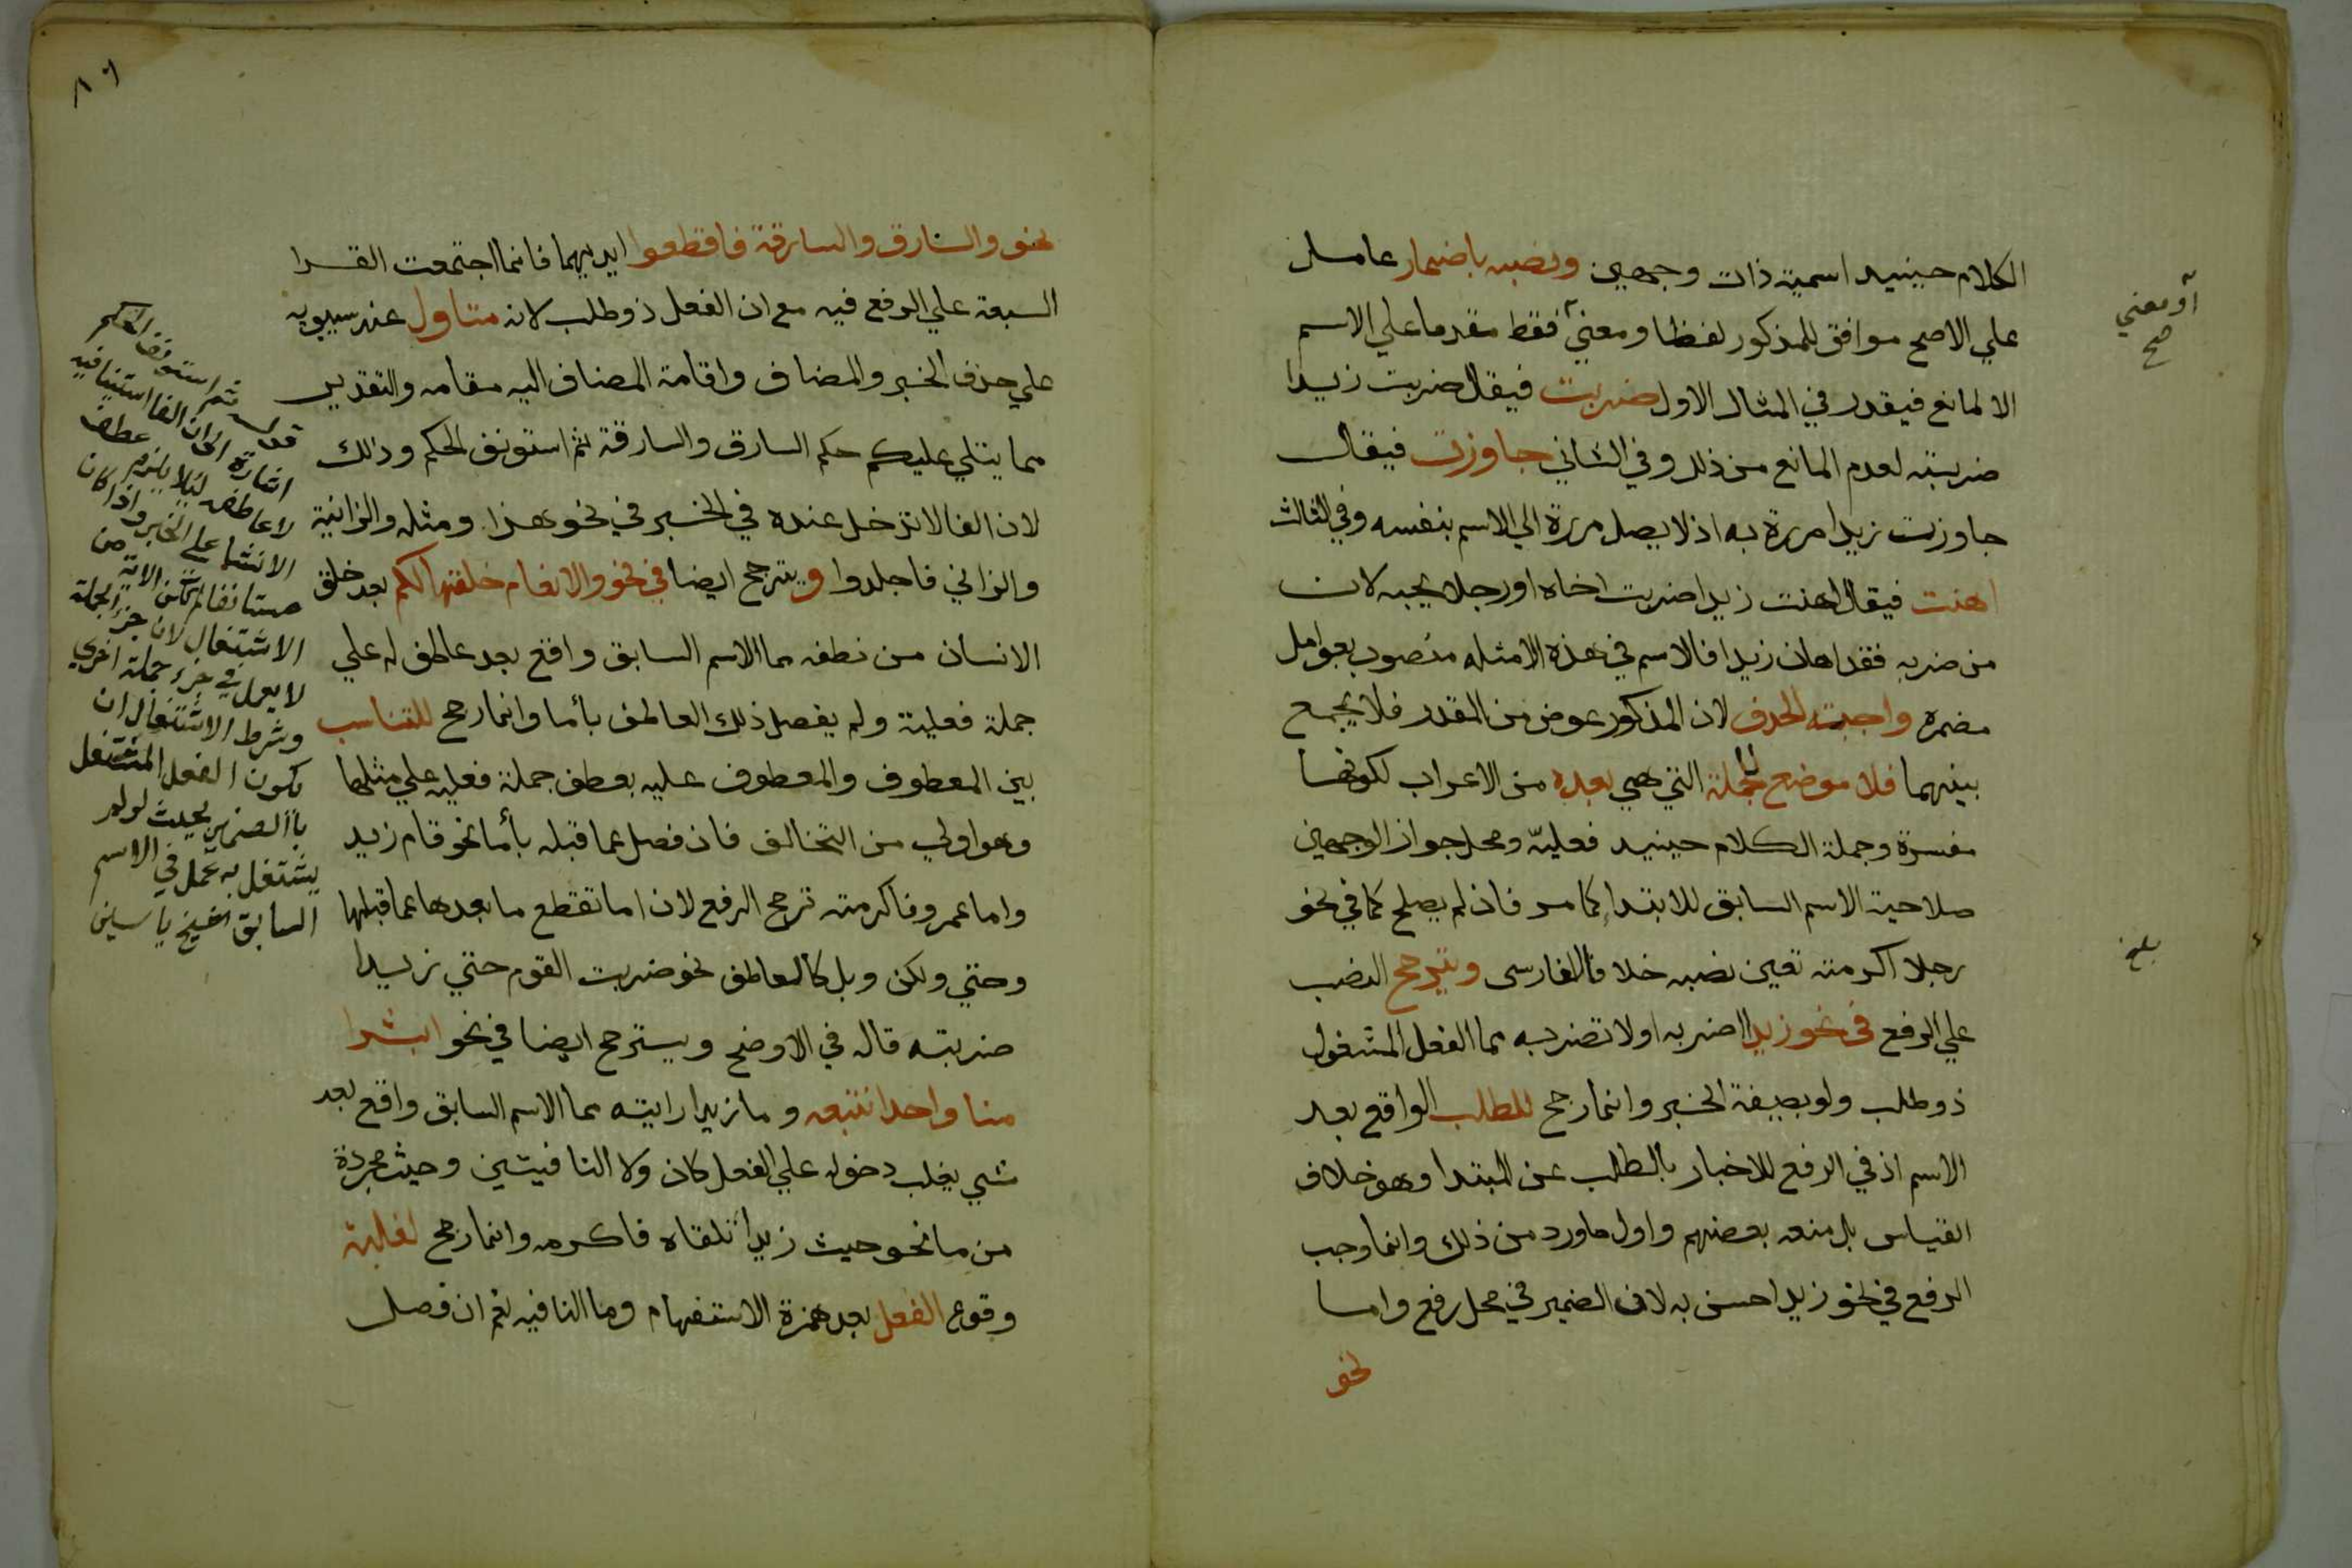 الكلام حينيد اسمية ذات وجهين ونصبه باضمار عامل
علي الاصح موافق للمذكور لفظا ومعني فقط مقدما علي الاسم
الا لمانع فيقدر في المثال الاول ضربت فيقال ضربت زيدا
ضربته لعدم المانع من ذلك وفي الثاني جاوزت فيقال
جاوزت زيدا مررة به اذ لا يصل مررة الي الاسم بنفسه وفي الثالث
اهنت فيقال اهنت زيدا ضربت اخاه او رجلا يحبه لان
من ضربه فقد اهان زيدا فالاسم في هذه الامثله منصوب بعوامل
مضمرة واجبته الحدف لان المذكور عوض من المقدر فلا يجمع
بينهما فلا موضع للجملة التي هي بعده من الاعراب لكونها
مفسرة وجملة الكلام حينيد فعلية ومحل جواز الوجهين
صلاحية الاسم السابق للابتداء كما مر فان لم يصلح كما في نحو
رجلا اكرمته تعين نصبه خلافا للفارسى ويترجح النصب
علي الرفع في نحو زيدا اضربه او لا تضربه مما الفعل المشغول
ذو طلب ولو بصيغة الخبر وانما رجح للطلب الواقع بعد
الاسم اذ في الرفع للاخبار بالطلب عن المبتدا وهو خلاف
القياس بل منعه بعضهم واول ما ورد من ذلك وانما وجب
الرفع في نحو زيد احسن به لان الضمير في محل رفع واما
نحو
أو معني
صح
بلغ
٨٦
نحو والسارق والسارقة فاقطعوا ايديهما فانما اجتمعت القرا
السبعة علي الرفع فيه مع ان الفعل ذو طلب لانه متاول عند سيبويه
علي حذف الخبر والمضاف واقامة المضاف اليه مقامه والتقدير
مما يتلي عليكم حكم السارق والسارقة ثم استونف الحكم وذلك
لان الفا لا تدخل عنده في الخبر في نحو هذا ومثله والزانية
والزاني فاجلدوا ويترجح ايضا في نحو والانعام خلقها لكم بعد خلق
الانسان من نطفه مما الاسم السابق واقع بعد عاطف له علي
جملة فعلية ولم يفصل ذلك العاطف بأما وانما رجح للتناسب
بين المعطوف والمعطوف عليه بعطف جملة فعليه علي مثلها
وهو اولي من التخالف فان فصل عما قبله بأما نحو قام زيد
واما عمرو فاكرمته ترجح الرفع لان اما تقطع ما بعدها عما قبلها
وحتي ولكن وبل كالعاطف نحو ضربت القوم حتي زيدا
ضربته قاله في الاوضح ويترجح ايضا في نحو ابشرا
منا واحدا نتبعه وما زيدا رايته مما الاسم السابق واقع بعد
شي يغلب دخوله علي الفعل كان ولا النافيتين وحيث مجردة
من ما نحو حيث زيدا تلقاه فاكرمه وانما رجح لغلبة
وقوع الفعل بعد همزة الاستفهام وما النافيه نعم ان فصل
قوله ثم استونف الحكم
اشارة الي ان الفا استينافيه
لا عاطفه ليلا يلزم عطف
الانشا علي الخبر واذا كان
مستانفا لم تكن الاية من
الاشتغال لان جزء الجملة
لا يعمل في جزء جملة اخري
وشرط الاشتغال ان
يكون الفعل المشتغل
بالضمير بحيث لو لم
يشتغل به عمل في الاسم
السابق الشيخ ياسين